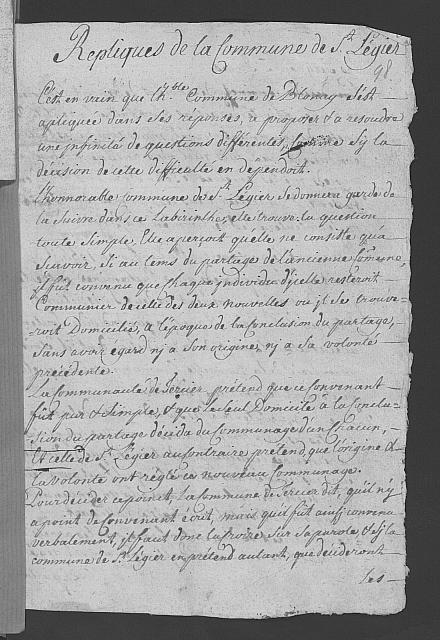 Repliques de la Commune de St. Légier
98.
C'est en vain que l'h.ble Commune de Blonay s'est
apliquée dans ses réponses, a proposer & a resoudre
une infinité de questions différentes, comme sy la
décision de cette difficulté en dépendoit.
l'honnorable commune de St. Légier se donnera garde de
la suivre dans ce Labirinthe; elle trouve la question
toute simple, Elle aperçoit qu'elle ne consiste qu'à
scavoir, Si au tems du partage de l'ancienne Comune,
il fut convenu que chaque individu d'jcelle resteroit
Communier de celle des deux nouvelles ou il se trouve-
roit Domicilié, a l'époque de la Conclusion du partage,
sans avoir egard nj a son origine, nj a sa volonté
précédente.
La Communauté de prétend que ce Convenant
fut pur & simple, & que le seul Domicile à la Conclu-
sion du partage décida du Communage d'un Chacun,
Et celle de St. Légier au contraire prétend, que l'origine &
la volonté ont réglé ce nouveau Communage.
Pour décider ce point, la Commune de dit, qu'il n'y
a point de Convenant écrit, mais qu'il fut ainsj convenu
verbalement, jl faut donc la croire sur sa parole, & sj la
commune de St. Légier en prétend autant, que décideront
les